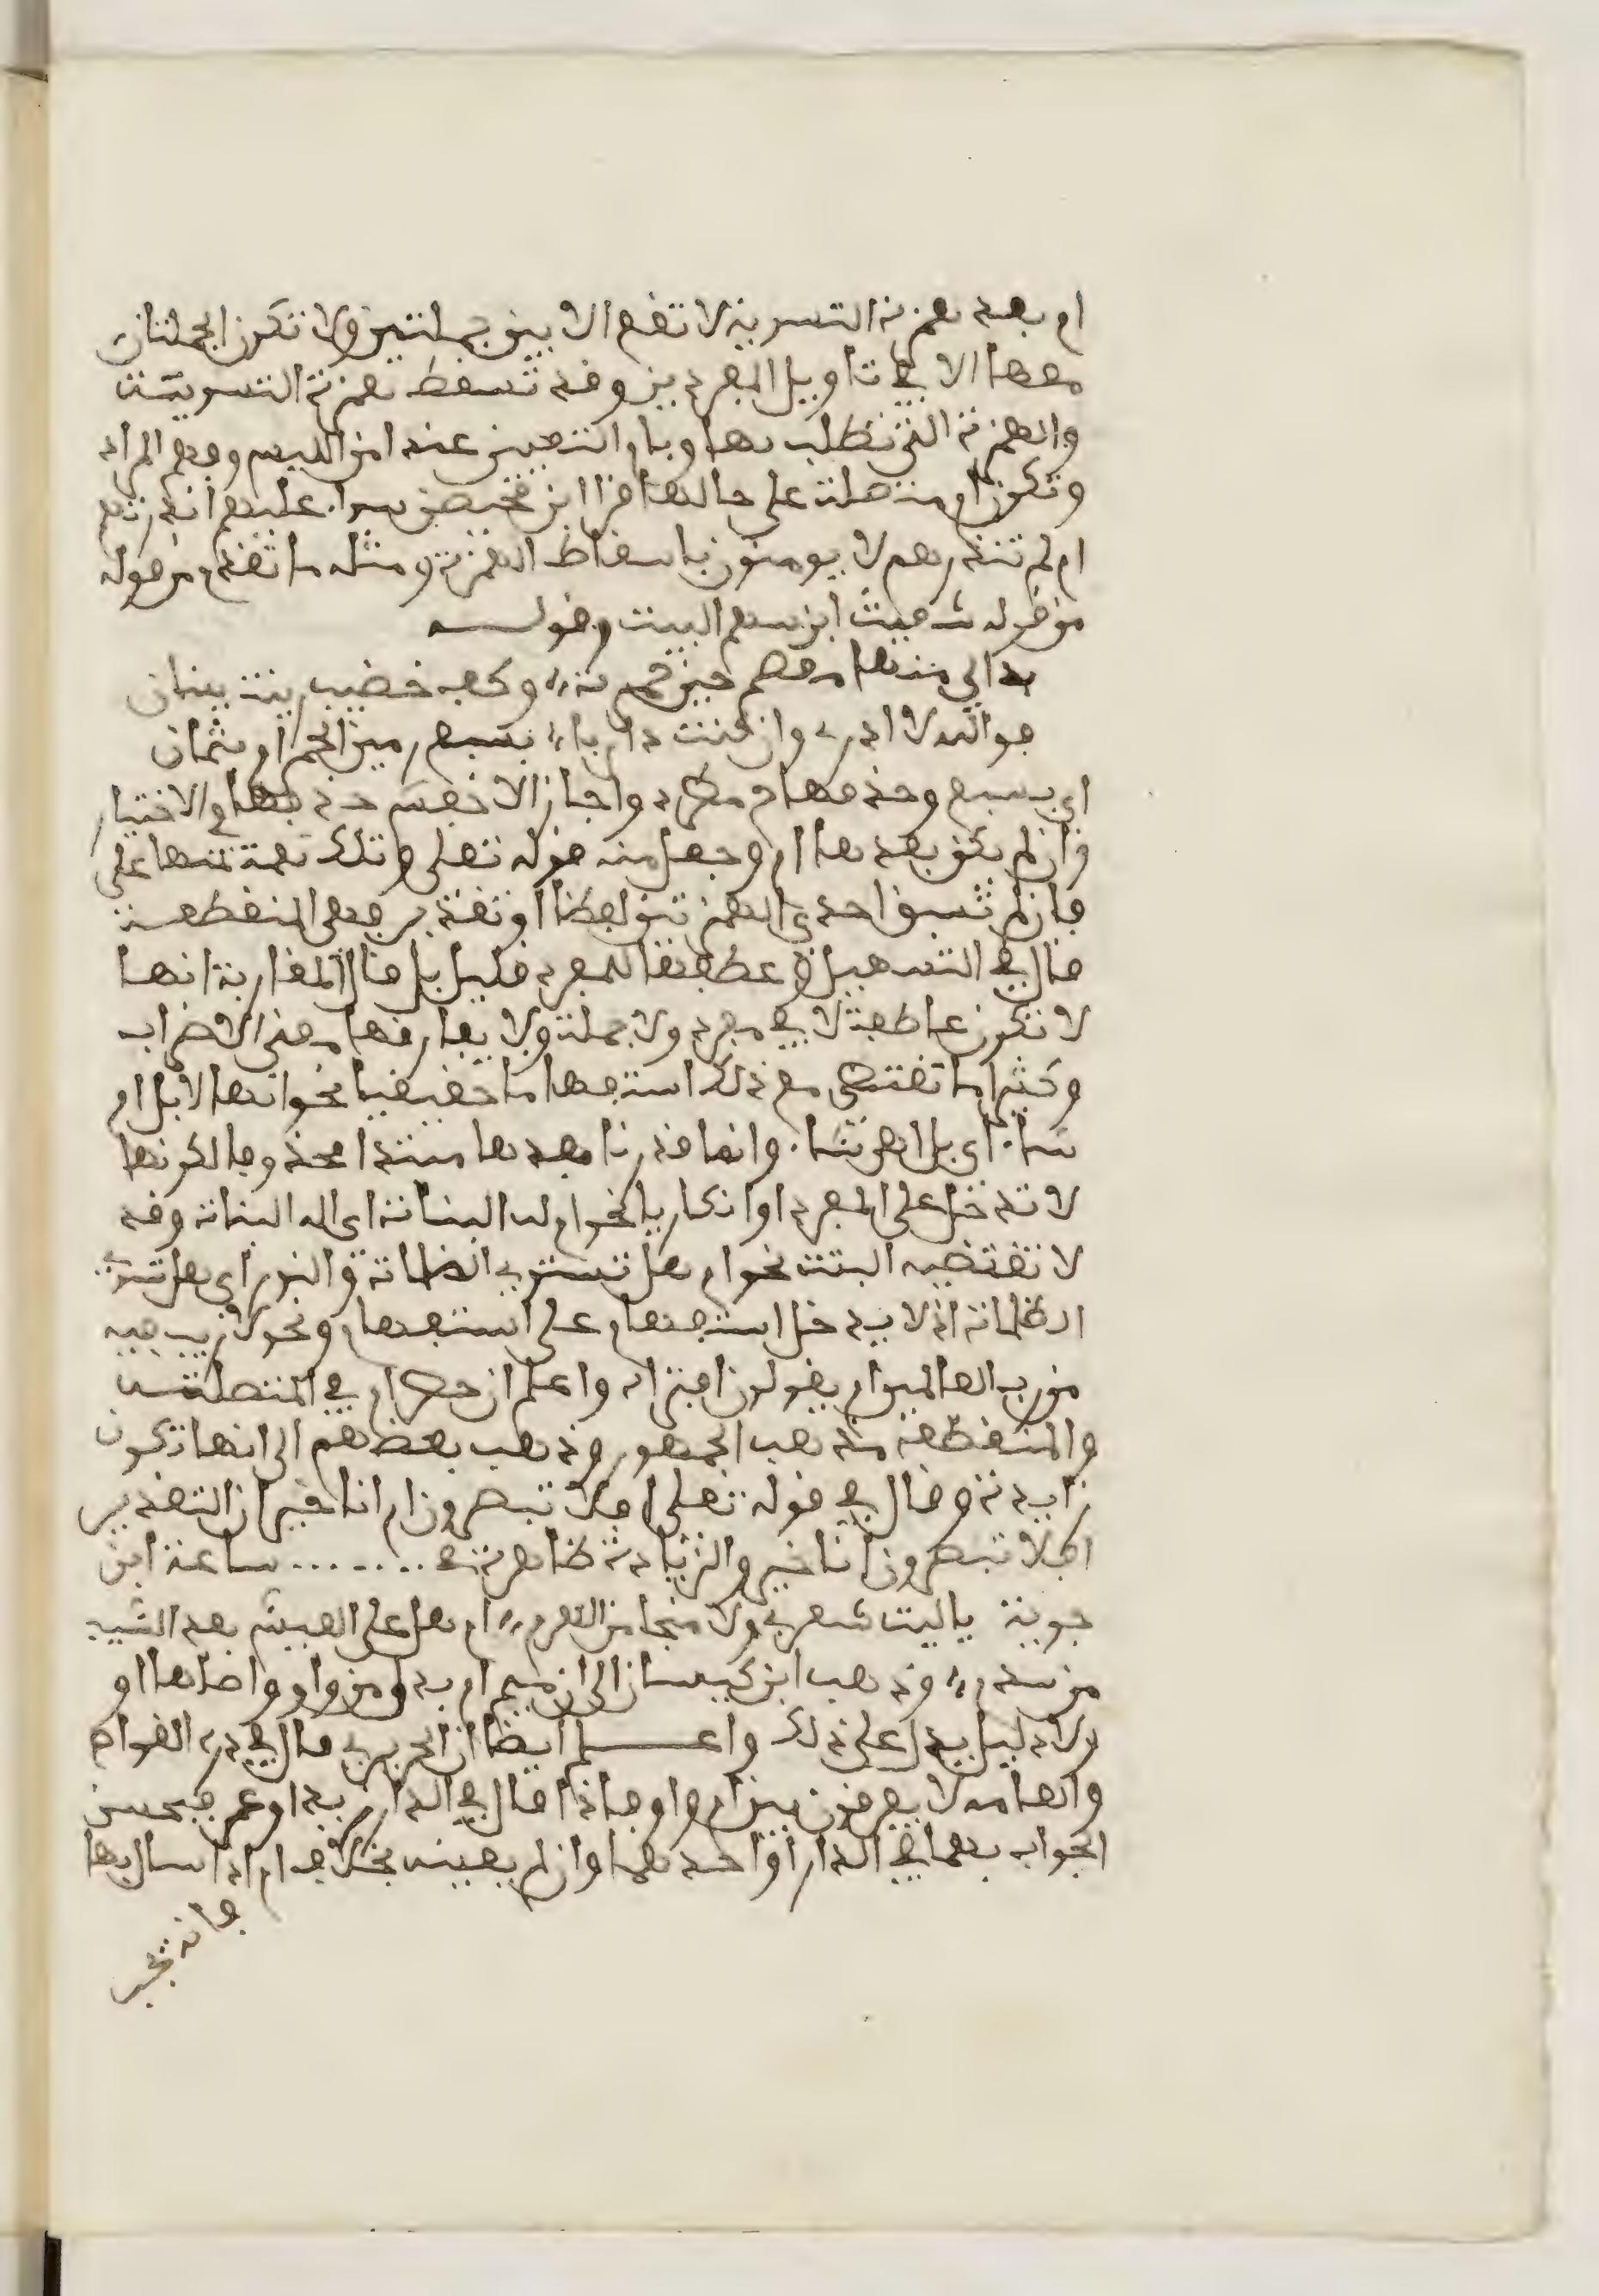 ام بعد همزة التسوية لا تقع الا بين جملتين ولا تكون الجملتان
معها الا في تاويل المفردين وقد تسقط همزة التسوية
والهمزة التي تطلب بها وبام التعيين عند امن اللبس وفهم المراد
وتكون ام متصلة على حالها قرا ابن محيصن سواء عليهم انذرتهم
ام لم تنذرهم لا يومنون باسقاط الهمزة ومثله ما تقدم من قوله
من قوله شعيث ابن سهم البيت وقولـــه
بدا لي منها معصم حين جمرت وكف خضيب زينت ببنان
فوالله لا ادري وان كنت داريا بسبع رمين الجمر ام بثمان
اي بسبع وحذفها مطرد واجاز الاخفش حذفها في الاختيار
وان لم يكن بعدها ام وجعل منه قوله تعلى وتلك نعمة تمنها علي
فان لم تسبق احدى الهمزتين لفظا او تقدير فهي المنقطعة
قال في التسهيل وعطفها المفرد قليل بل قال المغاربة انها
لا تكون عاطفة لا في مفرد ولا جملة ولا يفارقها معنى الاضراب
وكثيرا ما تقتضي مع ذلك استفهاما حقيقيا نحو انها لابل ام
شاء اي بل اهي شاء وانما قدرنا بعدها مبتدا محذوفا لكونها
لا تدخل على المفرد او انكاريا نحو ام له البنات اي اله البنات وقد
لا تقتضيه البتة نحو ام هل تستوي الظلمات والنور اي هل تستوي
الظلمات اذ لا يدخل استفهام على استفهام ونحو لا ريب فيه
من رب العالمين ام يقولون افتراه واعلم ان حصر ام في المتصلة
والمنقطعة مذهب الجمهور وذهب بعضهم الى انها تكون
زايدة وقال في قوله تعلى افلا تبصرون ام انا خير ان التقدير
افلا تبصرون انا خير والزيادة ظاهرة في ........ ساعدة ابن
جوية يا ليت شعري ولا منجا من الهرم ام هل على العيش بعد الشيب
من ندم وذهب ابن كيسان الى ان ميم ام بدل من واو واصلها او
ولا دليل يدل على ذلك واعـــلم ايضا ان الحريري قال في درة الغواص
والعامه لا يفرقون بين ام واو فاذا قال في الدار زيد او عمر فيحسن
الجواب بهما في الدار او احدهما وان لم يعينه بخلاف ام اذا سال بها
فانه يجيب